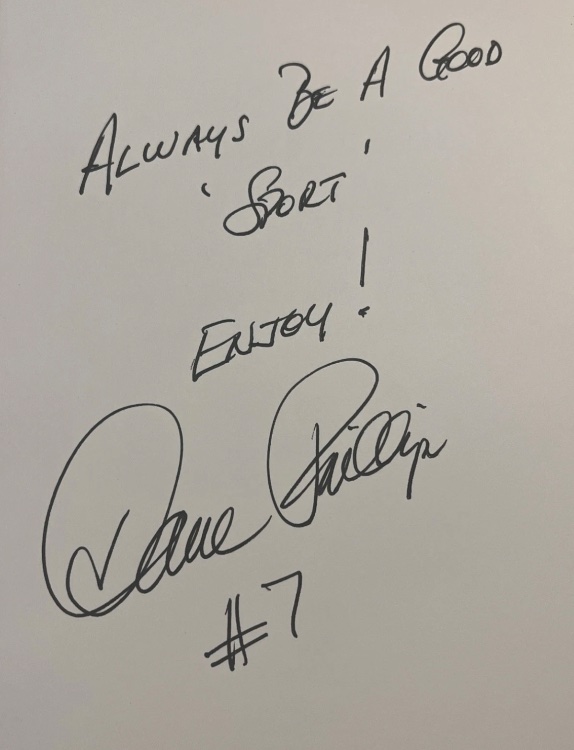 ALWAYS BE A GOOD
'SPORT'
ENJOY!
Dave Phillip
#7